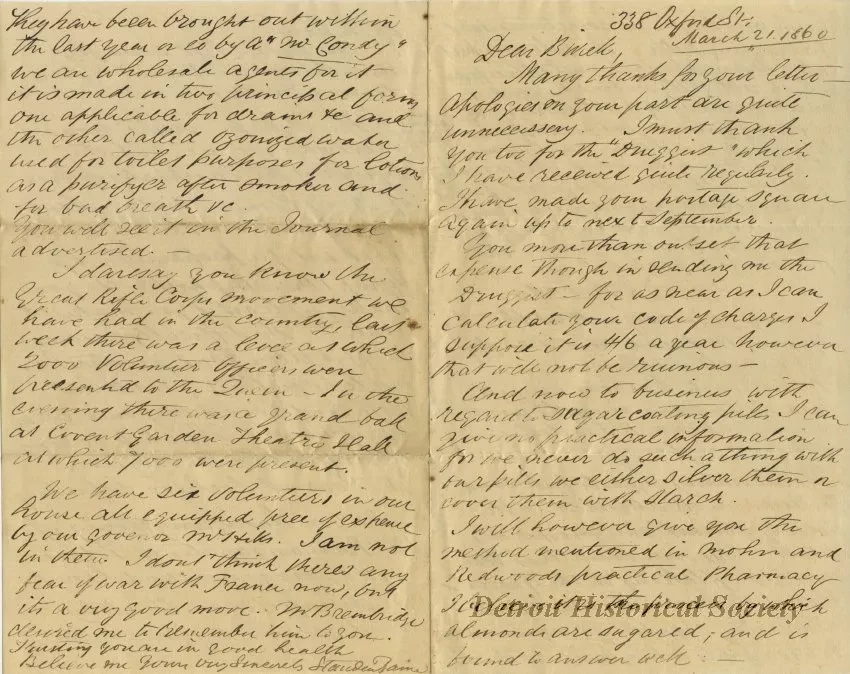 338 Oxford St.
March 21. 1860
Dear Birch,
Many thanks for your letter —
Apologies on your part are quite
unnecessary. I must thank
you too for the "Druggist" which
I have received quite regularly.
I have made your postage square
again up to next September.
You more than outset that
expense though in sending me the
Druggist — for as near as I can
calculate your code of charges I
suppose it is 4/6 a year however
that will not be ruinous —
And now to business with
regard to sugarcoating pills I can
give no practical information
for we never do such a thing with
our pills we either silver them or
cover them with starch.
I will however give you the
method mentioned in Mohr and
Redwoods practical Pharmacy
It is the process by which
almonds are sugared, and is
found to answer well —
Detroit Historical Society
They have been brought out within
the last year or so by a "Mr Condy"
we are wholesale agents for it
it is made in two principal forms
one applicable for drains &c and
the other called ozonized water
used for toilet purposes for lotions
as a purifyer after smoker and
for bad breath &c
You will see it in the Journal
advertised. —
I daresay you know the
Great Rifle Corps movement we
have had in the country, last
week there was a levee at which
2000 Volunteer Officers were
presented to the Queen — In the
evening there was a grand ball
at Covent Garden Theatre & Hall
at which 7000 were present.
We have six Volunteers in our
house all equipped free of expense
by our governor Mr Hills. I am not
in them. I dont think theres any
fear of war with France now, but
its a very good move. Mr Brembridge
desired me to remember him to you.
Trusting you are in good health
Believe me Yours very Sincerely